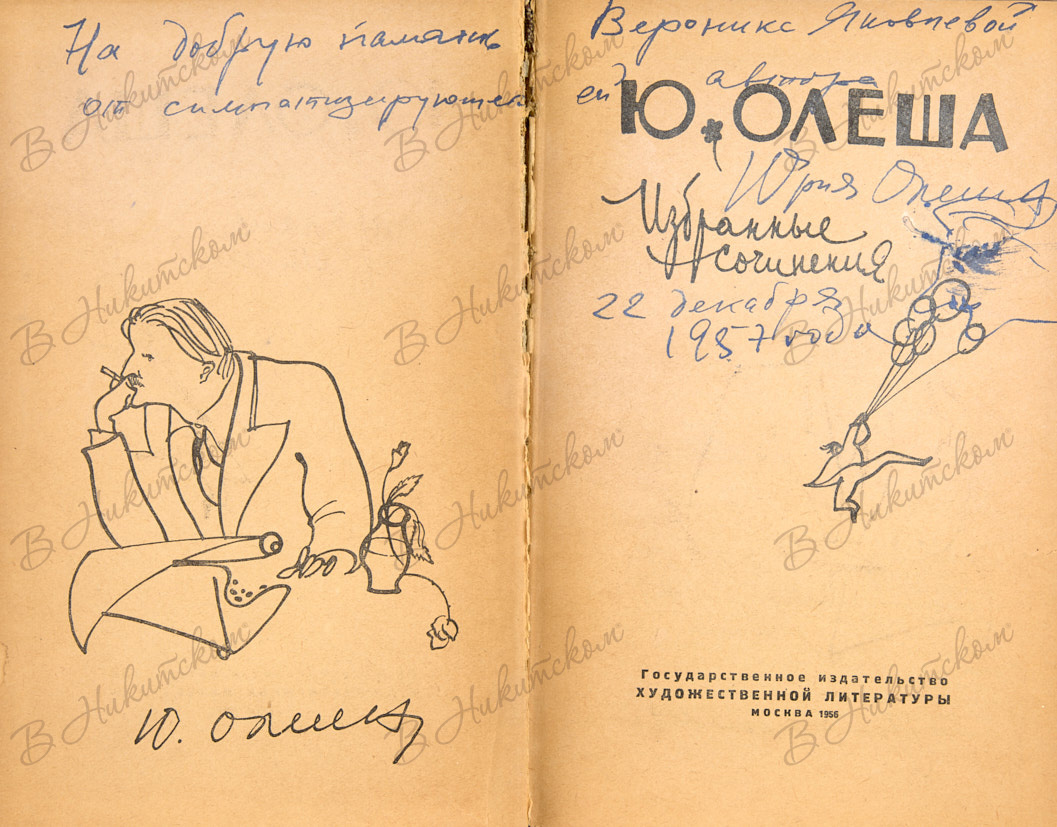 На добрую память
от симпатизирующего
Ю. Олеша
Веронике Яковлевой
ей автора
Ю. ОЛЕША
Юрия Олеши
Избранные
сочинения
22 декабря
1957 года
Государственное издательство
ХУДОЖЕСТВЕННОЙ ЛИТЕРАТУРЫ
МОСКВА 1956
В Никитском